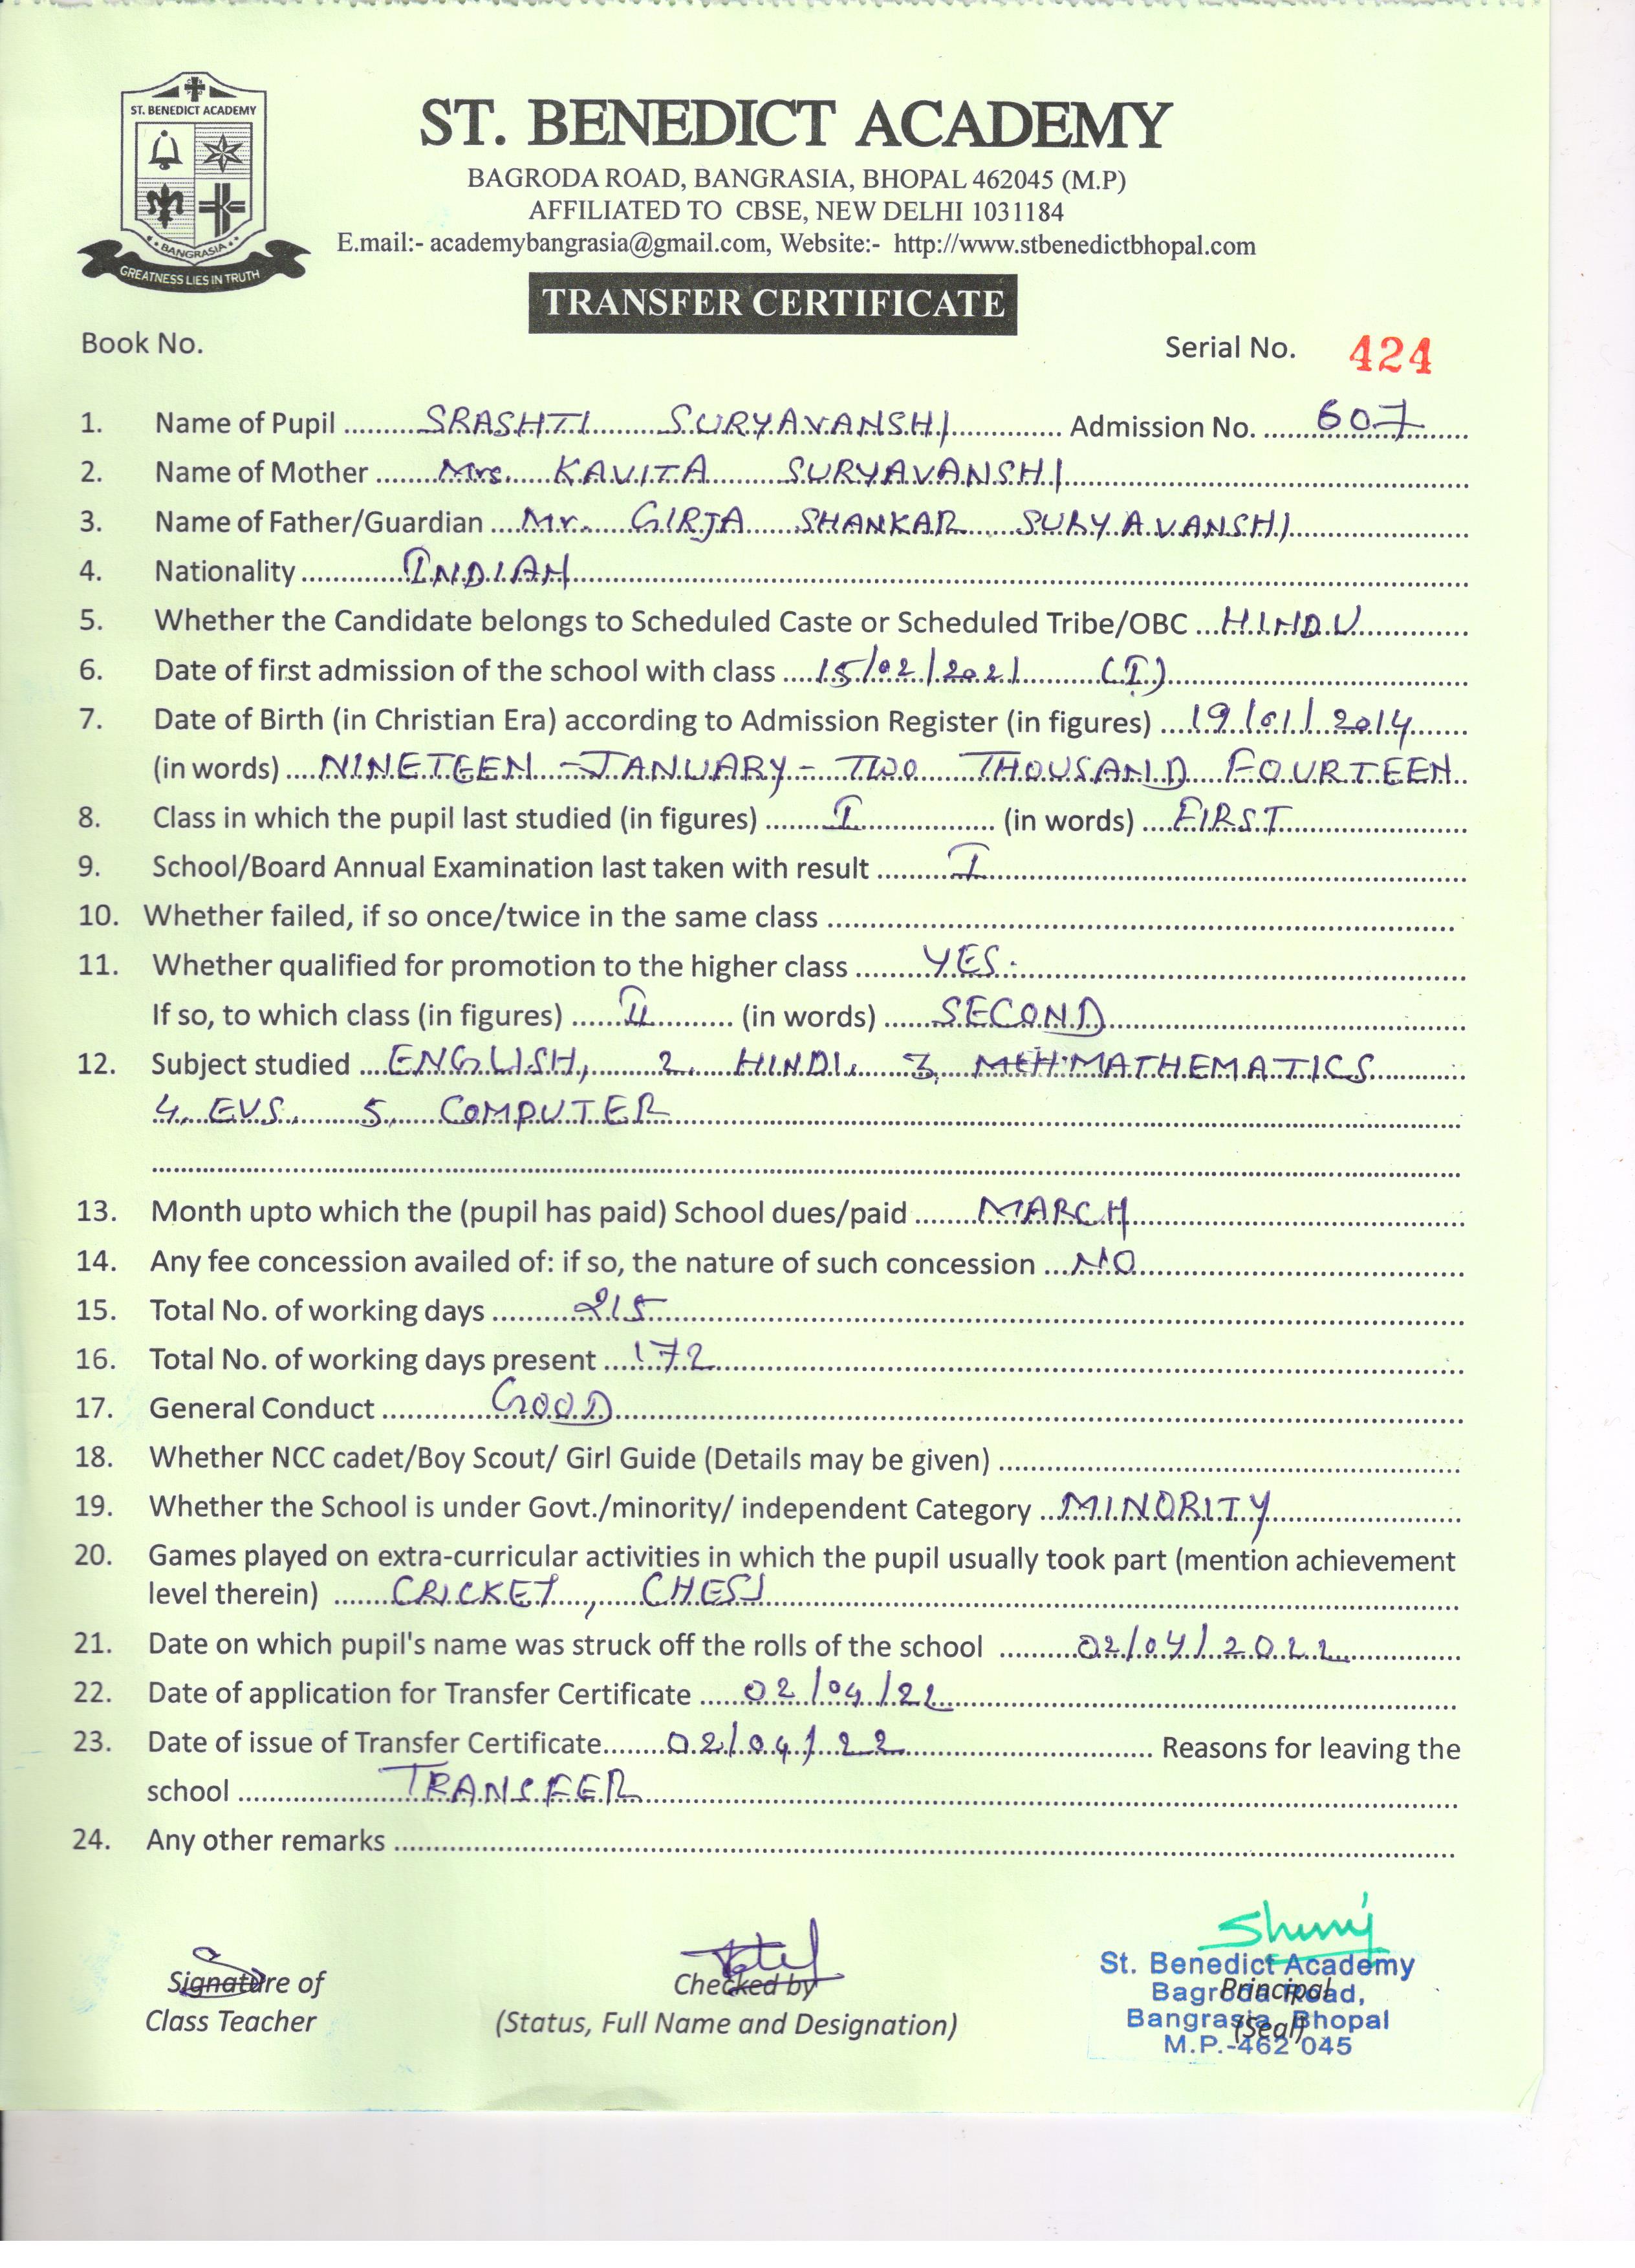 ST. BENEDICT ACADEMY
BANGRASIA
GREATNESS LIES IN TRUTH
ST. BENEDICT ACADEMY
BAGRODA ROAD, BANGRASIA, BHOPAL 462045 (M.P)
AFFILIATED TO CBSE, NEW DELHI 1031184
E.mail:- academybangrasia@gmail.com, Website:- http://www.stbenedictbhopal.com
TRANSFER CERTIFICATE
Book No. Serial No. 424
1. Name of Pupil SRASHTI SURYAVANSHI Admission No. 607
2. Name of Mother Mrs. KAVITA SURYAVANSHI
3. Name of Father/Guardian Mr. GIRJA SHANKAR SURYAVANSHI
4. Nationality INDIAN
5. Whether the Candidate belongs to Scheduled Caste or Scheduled Tribe/OBC HINDU
6. Date of first admission of the school with class 15/02/2021 (I)
7. Date of Birth (in Christian Era) according to Admission Register (in figures) 19/01/2014
(in words) NINETEEN - JANUARY - TWO THOUSAND FOURTEEN
8. Class in which the pupil last studied (in figures) I (in words) FIRST
9. School/Board Annual Examination last taken with result I
10. Whether failed, if so once/twice in the same class
11. Whether qualified for promotion to the higher class YES.
If so, to which class (in figures) II (in words) SECOND
12. Subject studied ENGLISH, 2. HINDI, 3, MATHEMATICS
4. EVS. 5. COMPUTER
13. Month upto which the (pupil has paid) School dues/paid MARCH
14. Any fee concession availed of: if so, the nature of such concession NO
15. Total No. of working days 215
16. Total No. of working days present 172
17. General Conduct GOOD
18. Whether NCC cadet/Boy Scout/ Girl Guide (Details may be given)
19. Whether the School is under Govt./minority/ independent Category MINORITY
20. Games played on extra-curricular activities in which the pupil usually took part (mention achievement
level therein) CRICKET, CHESS
21. Date on which pupil's name was struck off the rolls of the school 02/04/2022
22. Date of application for Transfer Certificate 02/04/22
23. Date of issue of Transfer Certificate 02/04/22 Reasons for leaving the
school TRANSFER
24. Any other remarks
Signature of
Class Teacher
Checked by
(Status, Full Name and Designation)
St. Benedict Academy
Bagroda Road,
Bangrasia, Bhopal
M.P.-462 045
Principal
(Seal)